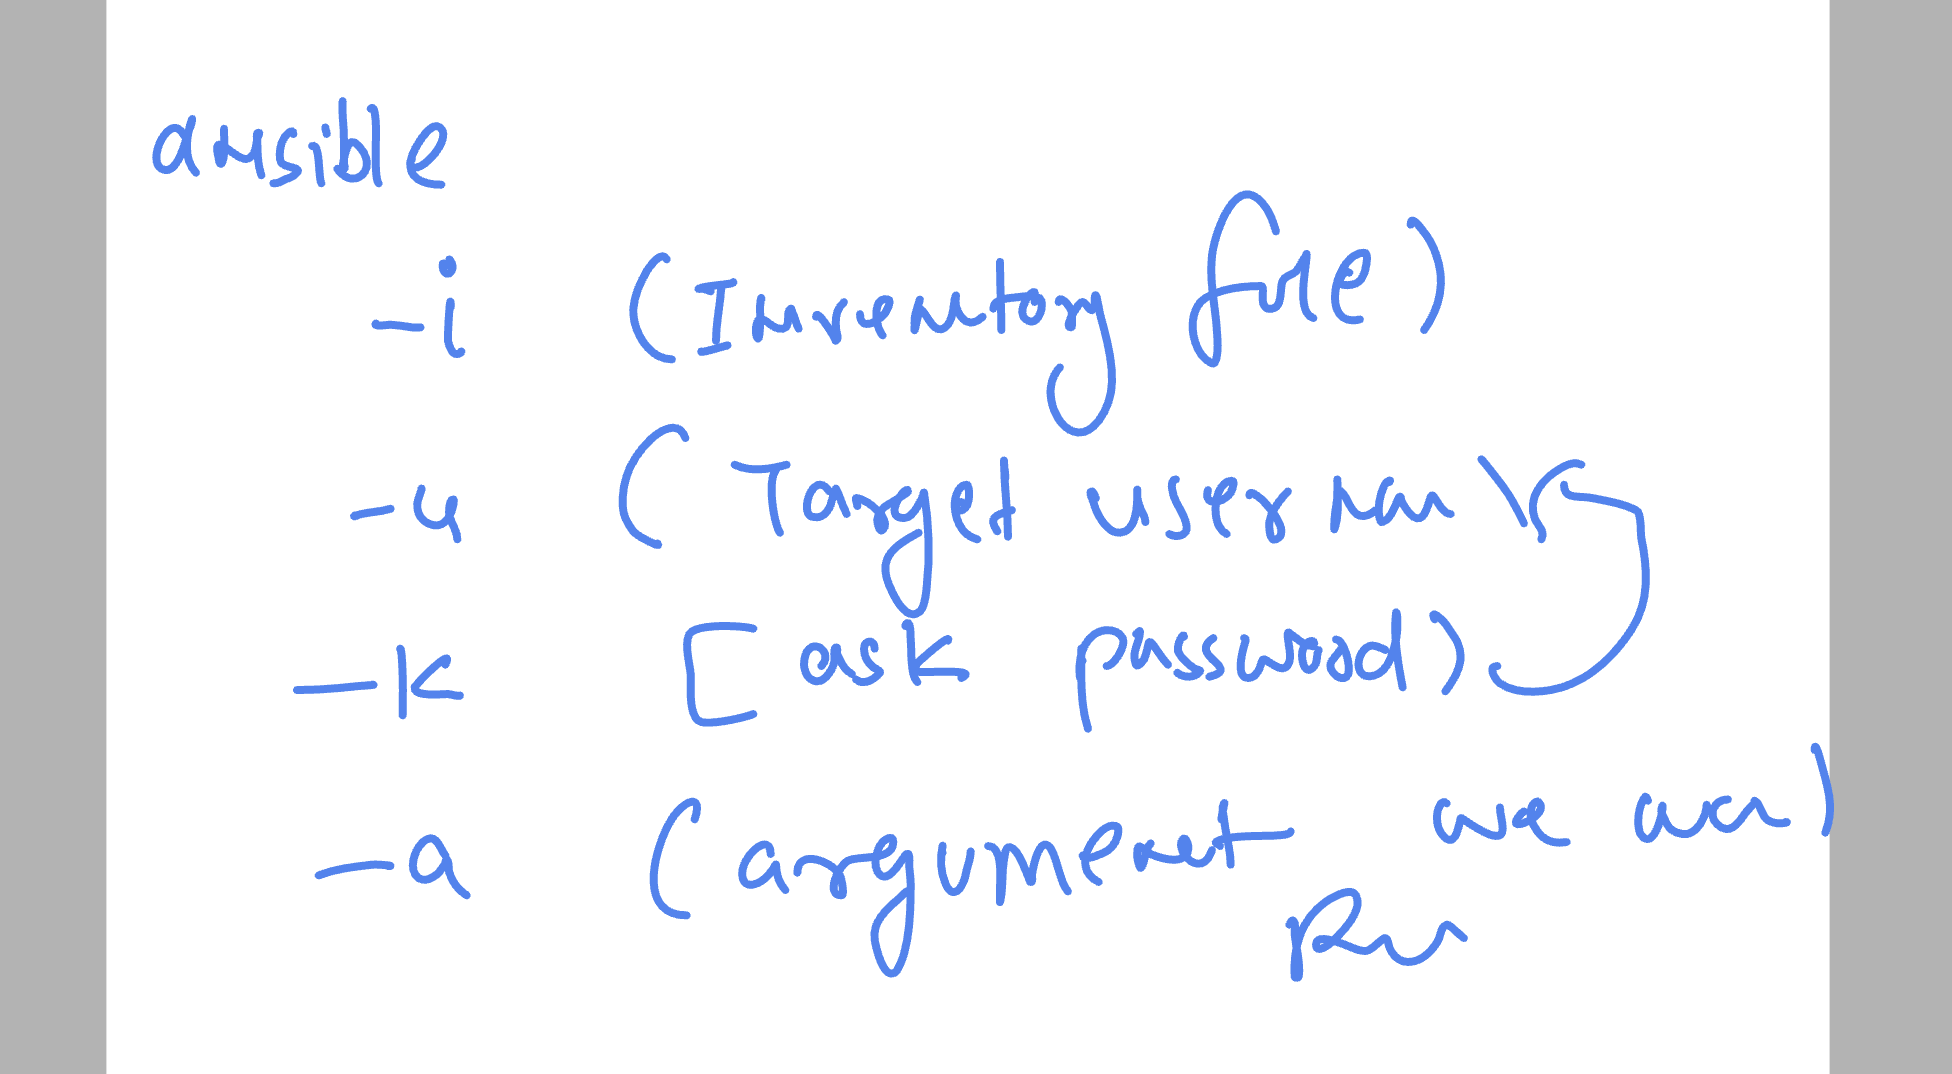 ansible
-i (Inventory file)
-u (Target user nam)
-k [ask password)
-a (argument we wan)
Ru